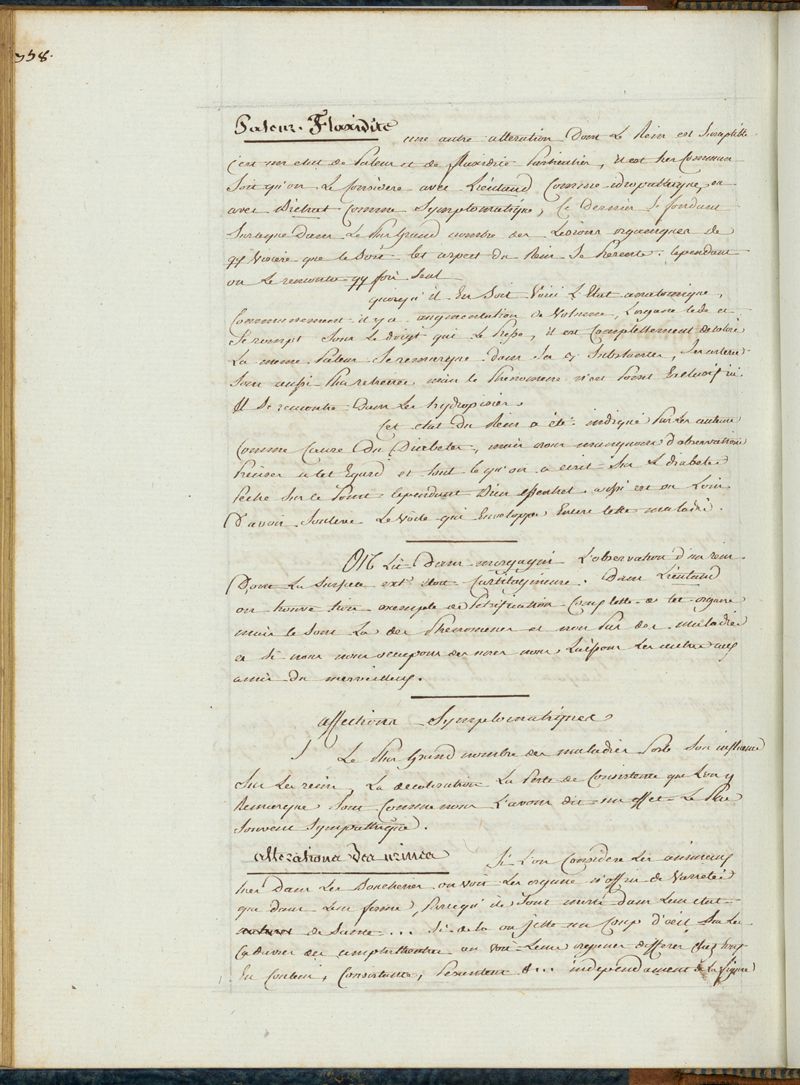 338.
Paleur. Flaxidité
une autre alteration Dont Le Rein est Susceptible
c'est un etat de Paleur et de flaxidité Particulier, il est tres Commun
Soit qu'on Le Considere avec Lieutaud Comme idiopathique, ou
avec Bichat Comme Symptomatique, Ce Dernier Se fondant
Sur ce que Dans Le Plus Grand nombre des Lesions organiques de
qq Viscere que ce Soit cet aspect du Rein Se Presente. Cependant
on Le rencontre qq fois Seul
quoiqu'il En Soit Voici L'Etat anatomique,
Communement il y a augmentation de Volume, L'organe cede et
Se rompt Sous Le doigt qui Le Presse, il est Complettement decoloré
La meme Paleur Se remarque Dans Ses Substances, Ses arteres
Sont aussi Plus retrecies mais ce Phenomene n'est Point Exclusif ici
Il Se rencontre Dans Les hydropisies.
Cet etat du Rein a été indiqué Par Les auteurs
Comme Cause Du Diabetes, mais nous manquons d'observations
Precises a cet Egard et tout ce qu'on a ecrit Sur Le diabetes
Peche Sur ce Point Cependant Bien Essentiel aussi est on Loin
D'avoir Soulevé Le Voile qui Enveloppe Encore cette maladie.
On Lit Dans morgagni L'observation d'un rein
Dont La Surface ext. etoit Cartilagineuse. Dans Lieutaud
on trouve un exemple de Petrification Complette de cet organe
mais ce Sont La des Phenomenes et non Pas des maladies
et Si nous nous occupons des unes nous Laissons Les autres aux
amis du merveilleux.
affections Symptomatiques
Le Plus Grand nombre des maladies Porte Son influence
Sur Les reins, La decoloration La Perte de Consistence que L'on y
Remarque Sont Comme nous L'avons dit un effet Le Plus
Souvent Sympathique.
alterations des urines
Si L'on Considere Les animaux
tués Dans Les Boucheries on voit Les organes n'offrir de Varietés
que dans Leur forme, Parcequ'ils Sont morts Dans Leur etat
de Santé... Si de La on jette un Coup d'oeil Sur Les
Cadavres des amphitheatres on voit Leurs organes differer chez tous
En Couleur, Consistance, Pesanteur &... independament de La figure